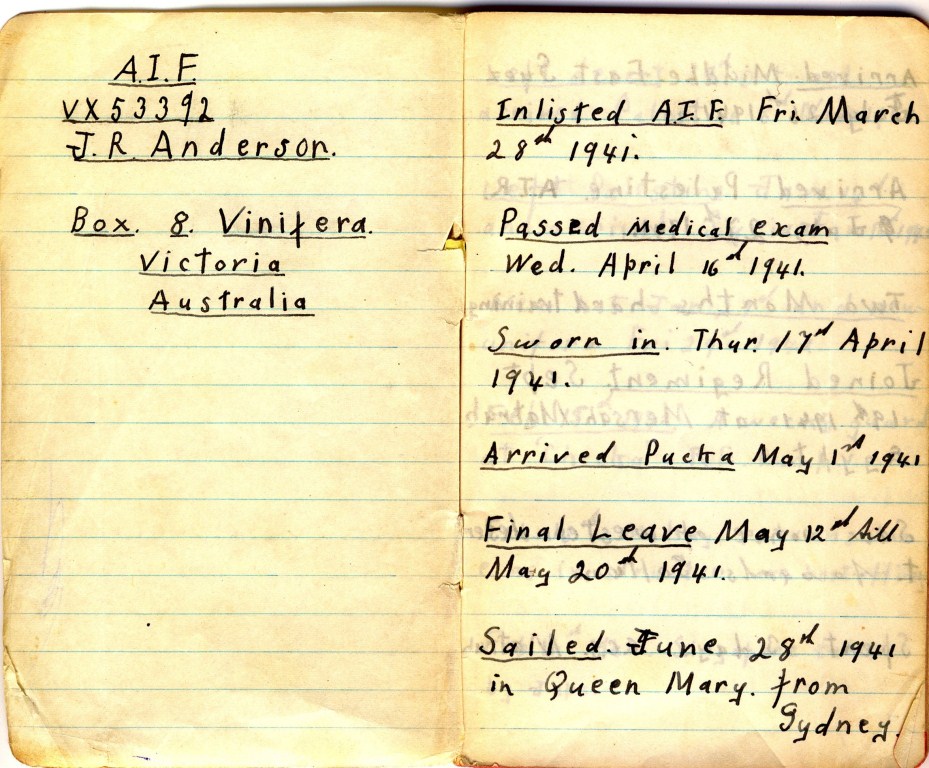 A.I.F.
VX53392
J.R. Anderson.
Box. 8. Vinifera.
Victoria
Australia
Inlisted A.I.F. Fri. March
28th 1941.
Passed Medical exam
Wed. April 16rd 1941.
Sworn in. Thur. 17rd April
1941.
Arrived Pucka May 1rd 1941
Final Leave May 12rd till
May 20rd 1941.
Sailed. June 28rd 1941
in Queen Mary. from
Sydney.